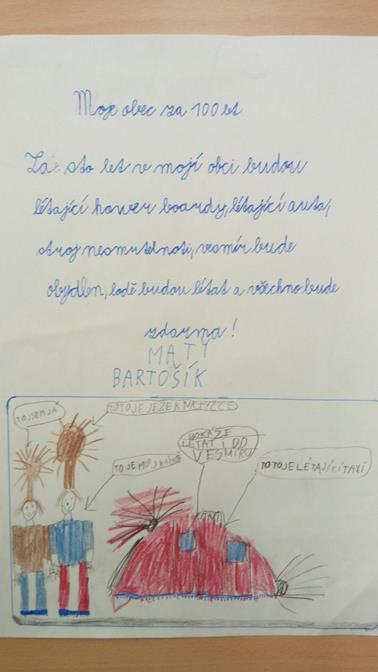 Moje obec za 100 let
Za sto let v mojí obci budou
létající hower boardy, létající auta,
stroj nesmrtelnoti, vesmír bude
obydlen, lodě budou létat a všechno bude
zdarma!
MATY
BARTOŠÍK
TO JSEM JÁ
TOTO JE JEŽEK
TO JE MŮJ
DOKÁŽE
LÉTAT I DO
VESMÍRU
TOTO JE LÉTAJÍCÍ TAXI
TAXI